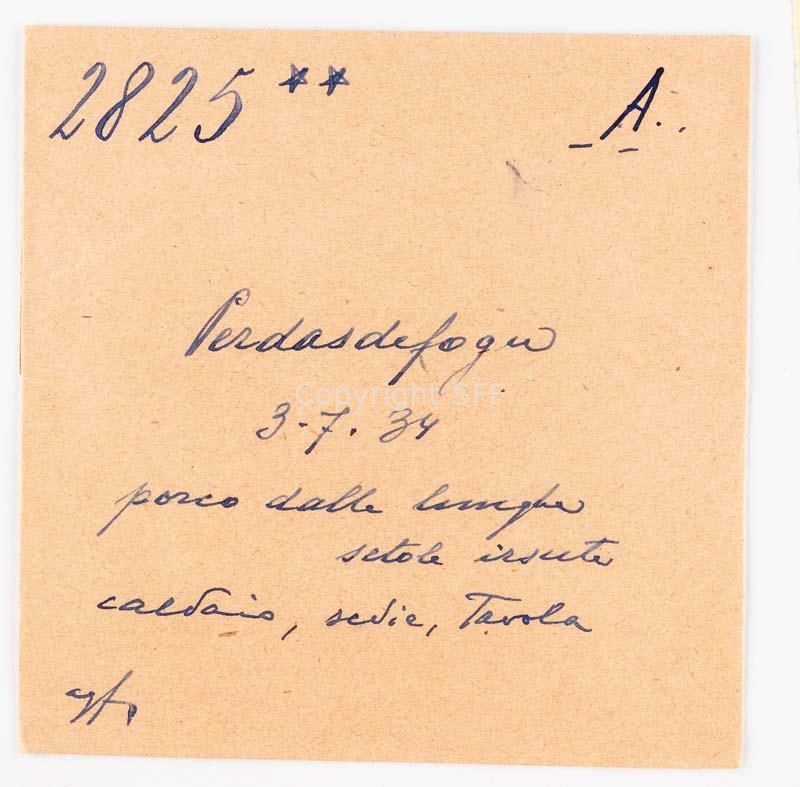 2825 ** A.
Perdasdefogu
Copyright SFF
3.7.34
porco dalle lunghe
setole irsute
caldaio, sedie, Tavola